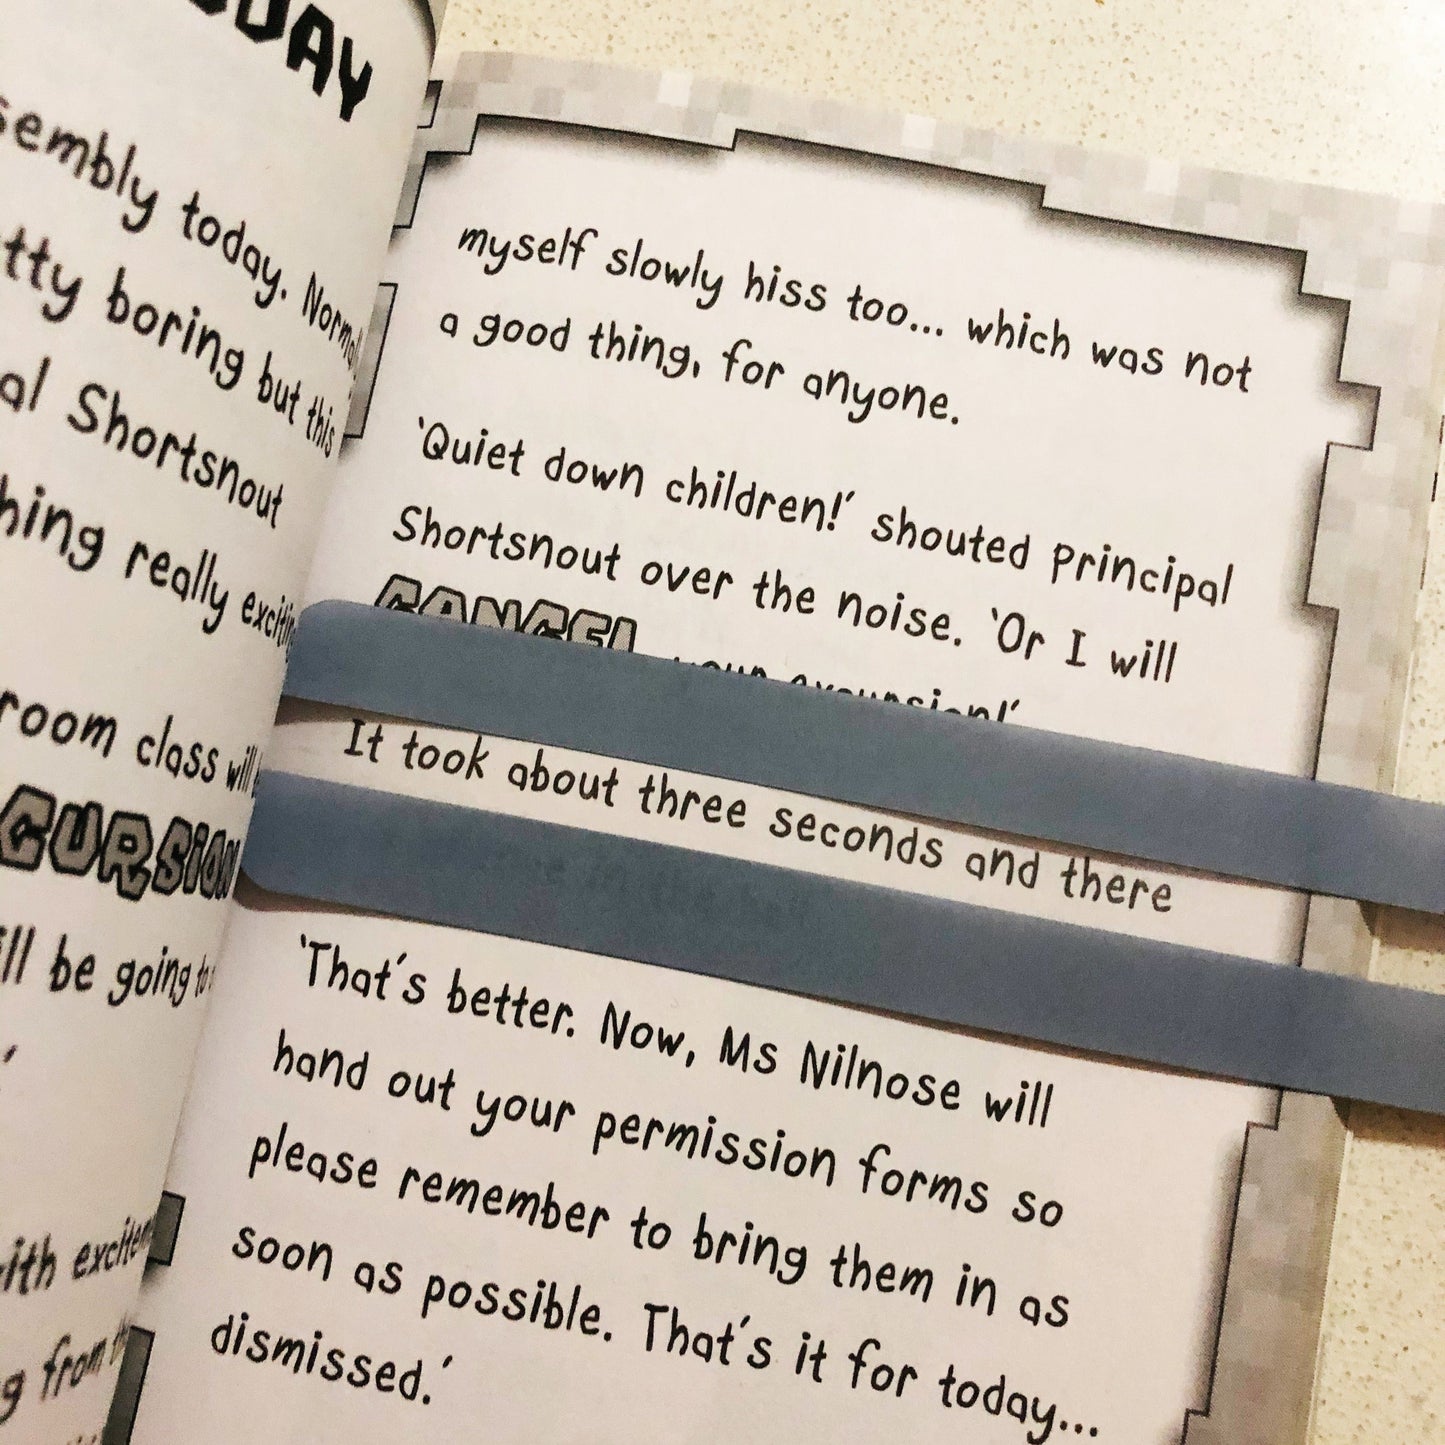 DAY
sembly today. Normal
tty boring but this
al Shortsnout
hing really exciting
room class will
CURSION
ill be going to
ith excitem
g from th
myself slowly hiss too... which was not
a good thing, for anyone.
‘Quiet down children!’ shouted Principal
Shortsnout over the noise. ‘Or I will
CANCEL your excursion!’
It took about three seconds and there
‘That’s better. Now, Ms Nilnose will
hand out your permission forms so
please remember to bring them in as
soon as possible. That’s it for today...
dismissed.’